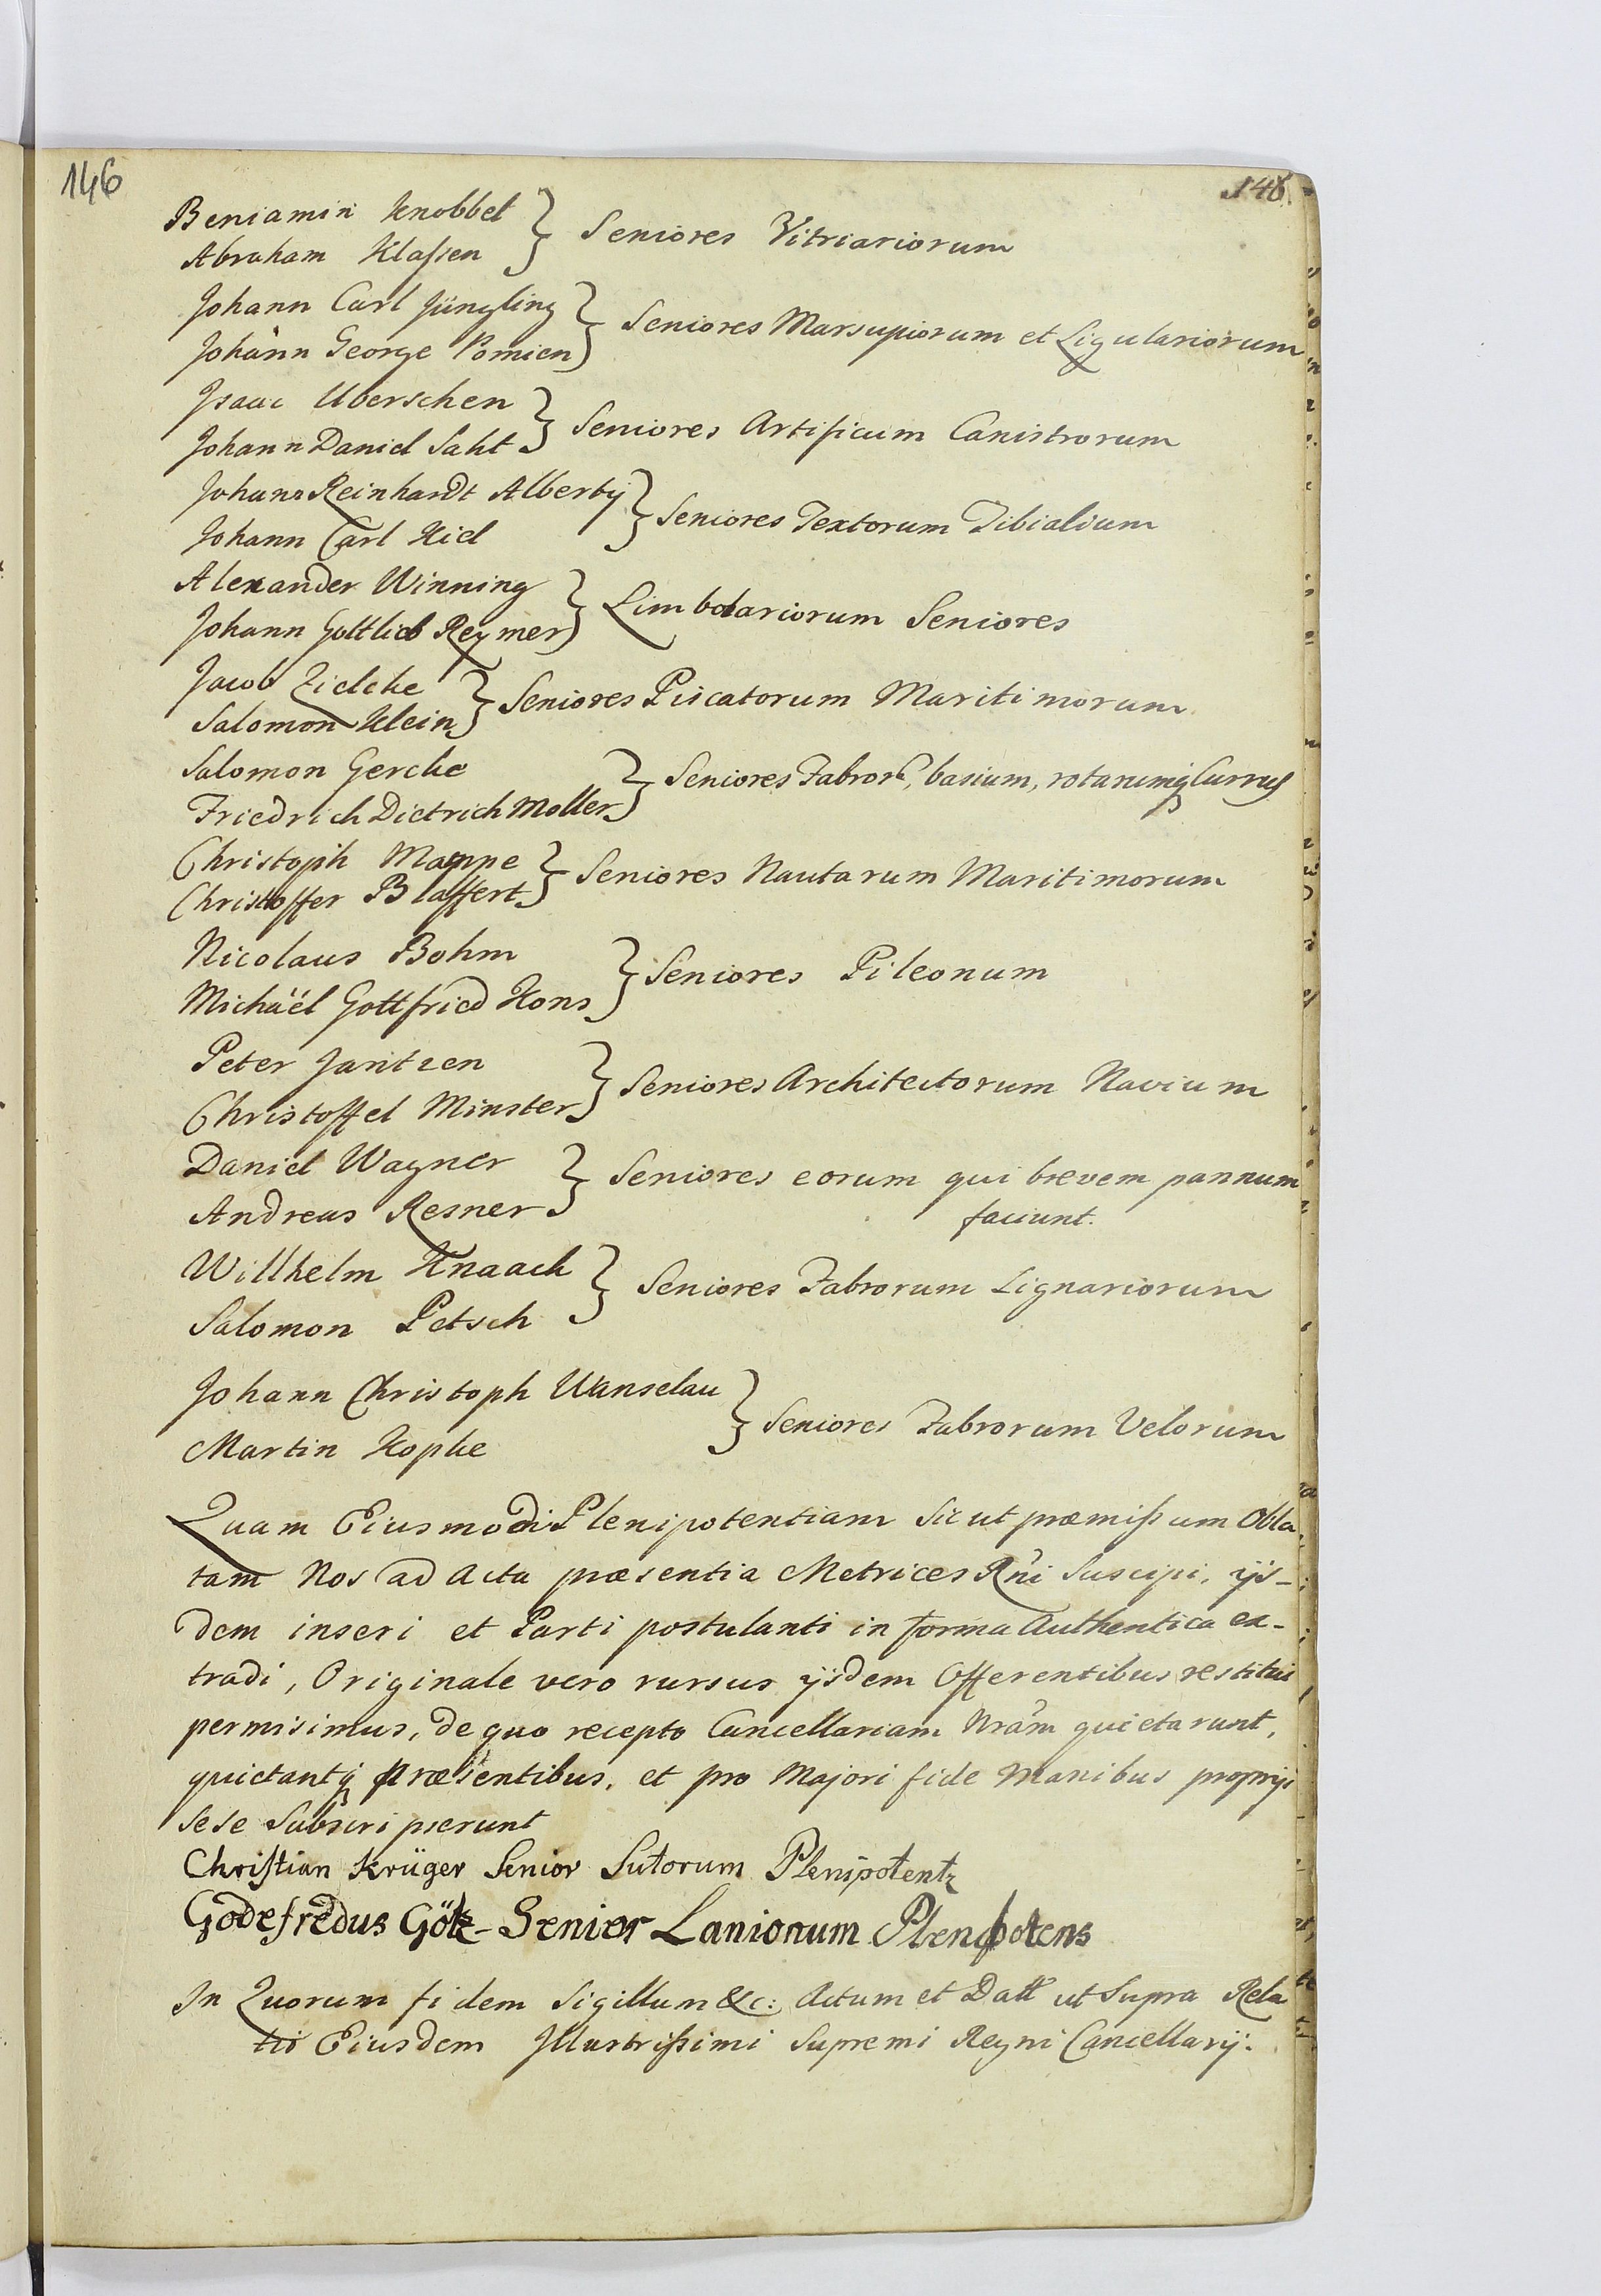 146
146.
Beniamin Knobbel
Abraham Klaßen } Seniores Vitriariorum
Johann Carl Jüngling
Johann George Pomien } Seniores Marsupiorum et Ligulariorum
Isaac Uberschen
Johann Daniel Saht } Seniores Artificum Canistrorum
Johann Reinhardt Alberty
Johann Carl Kiel } Seniores Textorum Tibialium
Alexander Winning
Johann Gottlieb Reymer } Limbolariorum Seniores
Jacob Zielcke
Salomon Klein } Seniores Piscatorum Maritimorum
Salomon Gercke
Friedrich Dietrich Moller } Seniores Fabror, basium, rotarumq Currus
Christoph Mappe
Christoffer Blaffert } Seniores Nautarum Maritimorum
Nicolaus Bohm
Michäel Gottfried Kons } Seniores Pileonum
Peter Jantzen
Christoffel Minster } Seniores Architectorum Navium
Daniel Wagner
Andreas Resner } Seniores eorum qui brevem pannum
faciunt.
Willhelm Knaack
Salomon Petsch } Seniores Fabrorum Lignariorum
Johann Christoph Wanselau
Martin Kopke } Seniores Fabrorum Velorum
Quam Eiusmodi Plenipotentiam sicut præmißum Obla
tam Nos ad Acta præsentia Metrices Rni Suscipi, ijs-
dem inseri et Parti postulanti in forma Authentica ex-
tradi, Originale vero rursus ijsdem Offerentibus restitui
permisimus, de quo recepto Cancellariam Nram quietarunt,
quietantq præsentibus, et pro Majori fide Manibus proprijs
sese Subscripserunt
Christian Krüger Senior Sutorum Plenipotent
Godefredus Götz - Senior Lanionum Plenipotens
In Quorum fidem Sigillum &c: Actum et Datt ut Supra Rela
tio Eiusdem Illustrißimi Supremi Regni Cancellarij.